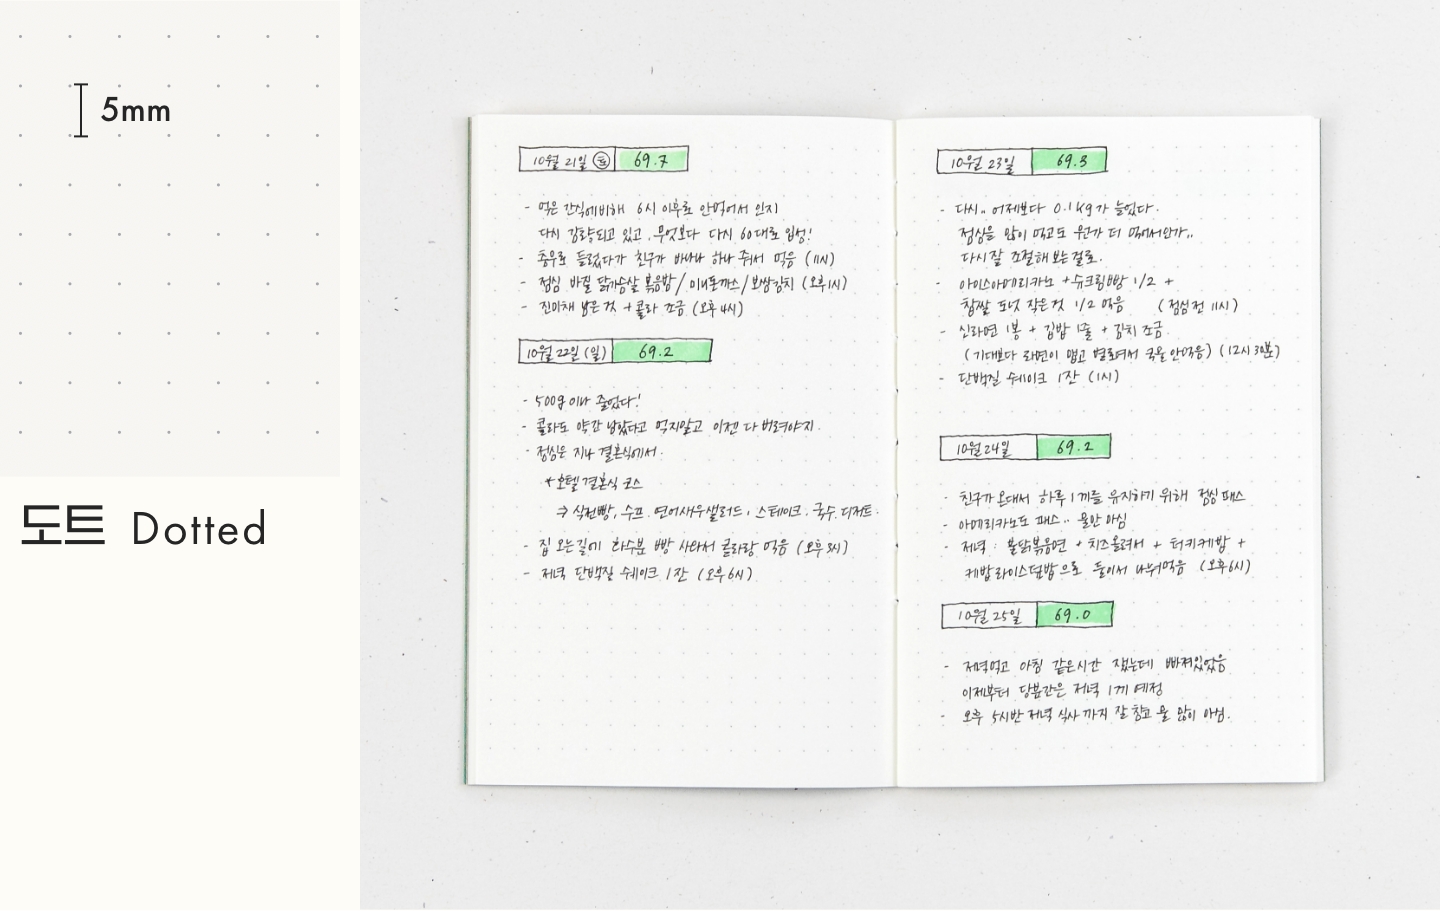 5mm
도트 Dotted
10월 21일 (토) 69.7
- 먹은 간식에비해 6시 이후로 안먹어서 인지
다시 감량되고 있고, 무엇보다 다시 60대로 입성!
- 충무로 들렀다가 친구가 바나나 하나 줘서 먹음 (11시)
- 점심 바질 닭가슴살 볶음밥/미니돈까스/보쌈김치 (오후1시)
- 진미채 남은것 + 콜라 조금 (오후 4시)
10월 22일 (일) 69.2
- 500g이나 줄었다!
- 콜라도 약간 남았다고 먹지말고 이젠 다 버려야지.
- 점심은 지나 결혼식에서.
* 호텔 결혼식 코스
⇒ 식전빵, 수프, 연어새우샐러드, 스테이크, 국수, 디저트.
- 집 오는길에 화수분 빵 사와서 콜라랑 먹음 (오후 3시)
- 저녁 단백질 쉐이크 1잔 (오후6시)
10월 23일 69.3
- 다시.. 어제보다 0.1kg가 늘었다.
점심을 많이 먹고도 뭔가 더 먹어서인가..
다시 잘 조절해 보는걸로.
- 아이스아메리카노 + 슈크림빵 1/2 +
찹쌀 도넛 작은것 1/2 먹음 (점심전 11시)
- 신라면 1봉 + 김밥 1줄 + 김치 조금
(기대보다 라면이 맵고 별로여서 국물 안먹음) (12시 30분)
- 단백질 쉐이크 1잔 (1시)
10월 24일 69.2
- 친구가 온대서 하루 1끼를 유지하기 위해 점심 패스
- 아메리카노도 패스.. 물만 마심
- 저녁 : 불닭볶음면 + 치즈올려서 + 터키케밥 +
케밥라이스덮밥으로 둘이서 나눠먹음 (오후6시)
10월 25일 69.0
- 저녁먹고 아침 같은시간 쟀는데 빠져있었음
이제부터 당분간은 저녁 1끼 예정
- 오후 5시반 저녁 식사 까지 잘 참고 물 많이 마심.